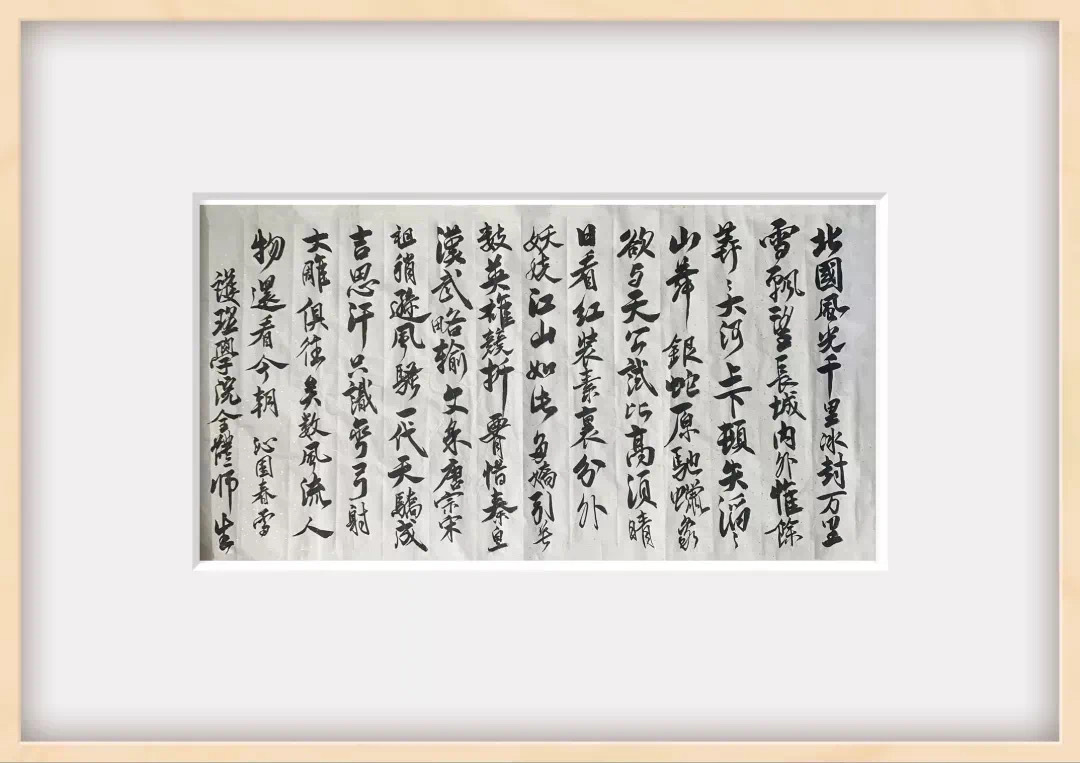 北國風光千里冰封万里
雪飘望長城内外惟馀
莽〻大河上下頓失滔〻
山舞銀蛇原馳蠟象
欲与天公試比高須晴
日看红装素裹分外
妖娆江山如此多嬌引无
数英雄競折腰惜秦皇
漢武略输文采唐宗宋
祖稍遜風騷一代天驕成
吉思汗只識弯弓射
大雕俱往矣数風流人
物還看今朝 沁園春雪
護理學院全體師生